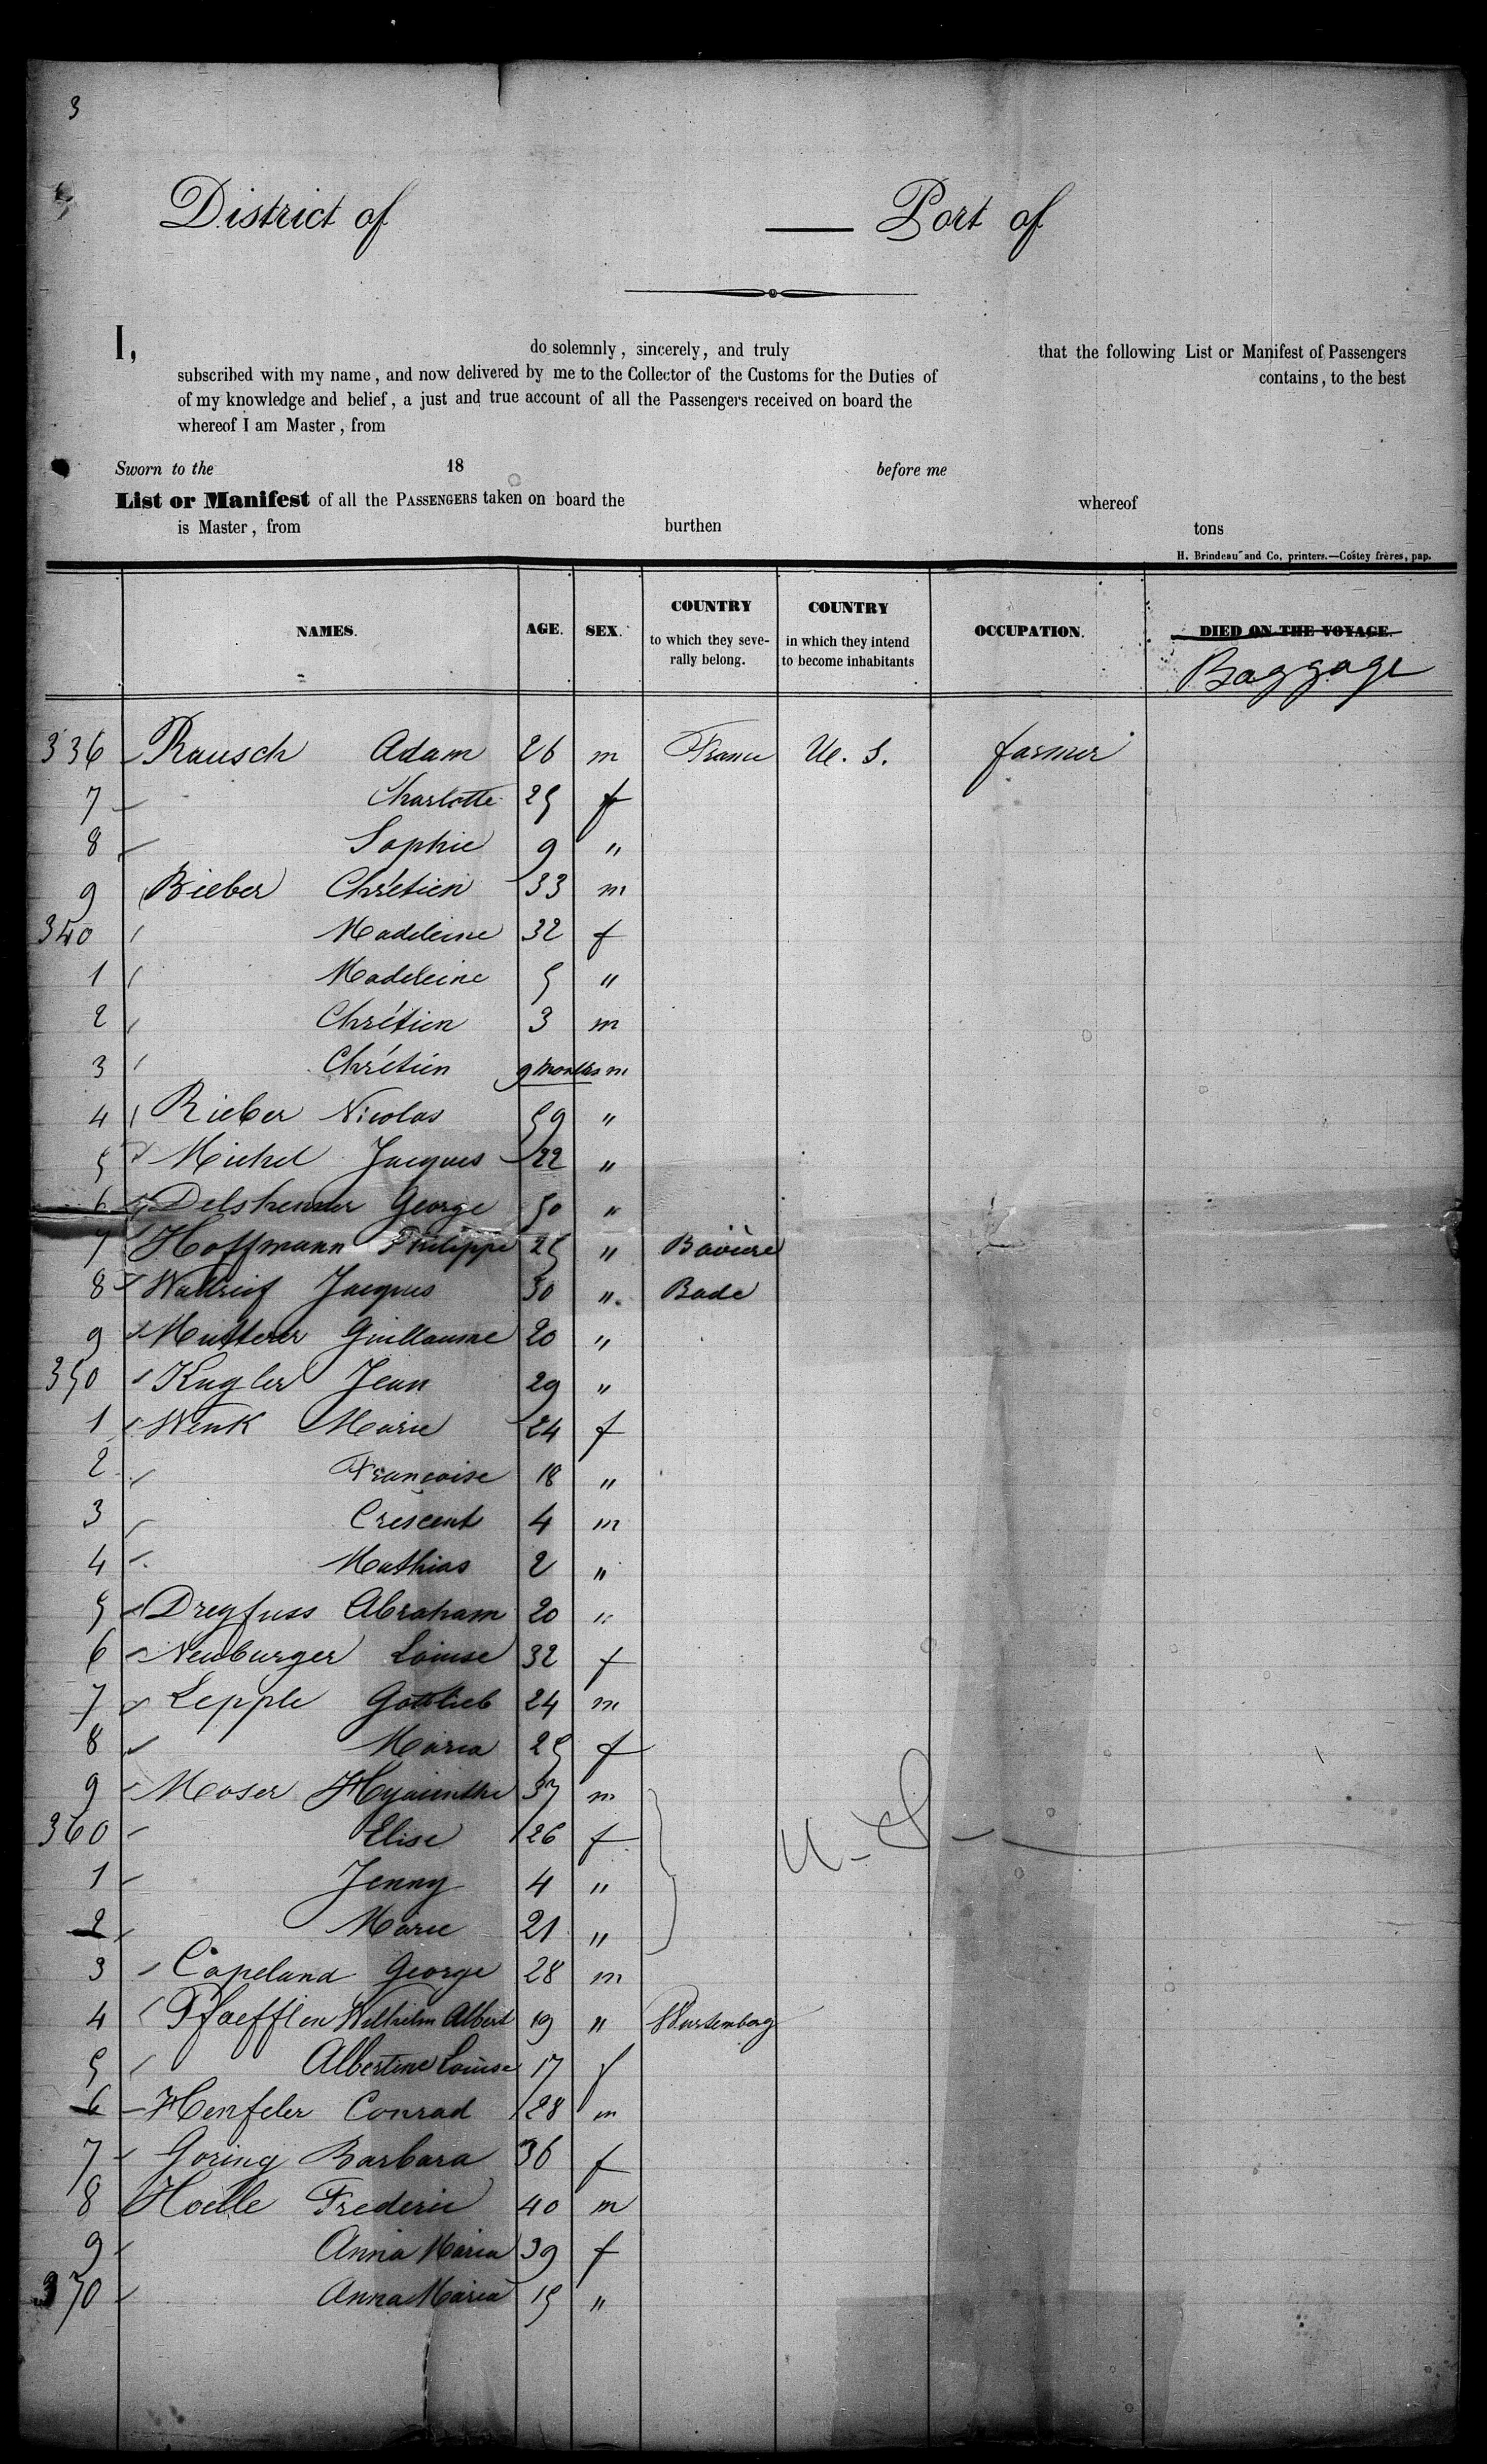 3
District of — Port of
I, do solemnly, sincerely, and truly that the following List or Manifest of Passengers
subscribed with my name, and now delivered by me to the Collector of the Customs for the Duties of contains, to the best
of my knowledge and belief, a just and true account of all the Passengers received on board the
whereof I am Master, from
Sworn to the 18 before me
List or Manifest of all the PASSENGERS taken on board the whereof
is Master, from burthen tons
H. Brindeau and Co. printers.—Costey frères, pap.
NAMES. AGE. SEX. COUNTRY to which they severally belong. COUNTRY in which they intend to become inhabitants OCCUPATION. DIED ON THE VOYAGE.
Baggage
336 Rausch Adam 26 m France U. S. farmer
7 Charlotte 25 f
8 Sophie 9 "
9 Bieber Chrétien 33 m
340 Madeleine 32 f
1 Madeleine 5 "
2 Chrétien 3 m
3 Chrétien 9 months m
4 Rieber Nicolas 59 "
5 Michel Jacques 22 "
6 George 50 "
7 Hoffmann Philippe 25 " Bavière
8 Jacques 30 " Bade
9 Mutterer Guillaume 20 "
350 Kugler Jean 29 "
1 Wenk Marie 24 f
2 Françoise 18 "
3 Crescent 4 m
4 Mathias 2 "
5 Dreyfuss Abraham 20 "
6 Neuburger Louise 32 f
7 Lepple Gottlieb 24 m
8 Maria 25 f
9 Moser Hyacinthe 37 m
360 Elise 26 f U-S-
1 Jenny 4 "
2 Marie 21 "
3 Copeland George 28 m
4 Pfaefflen Wilhelm Albert 19 " Wurtemberg
5 Albertine Louise 17 f
6 Henfeler Conrad 28 m
7 Goring Barbara 36 f
8 Hoelle Frederic 40 m
9 Anna Maria 39 f
370 Anna Maria 15 "